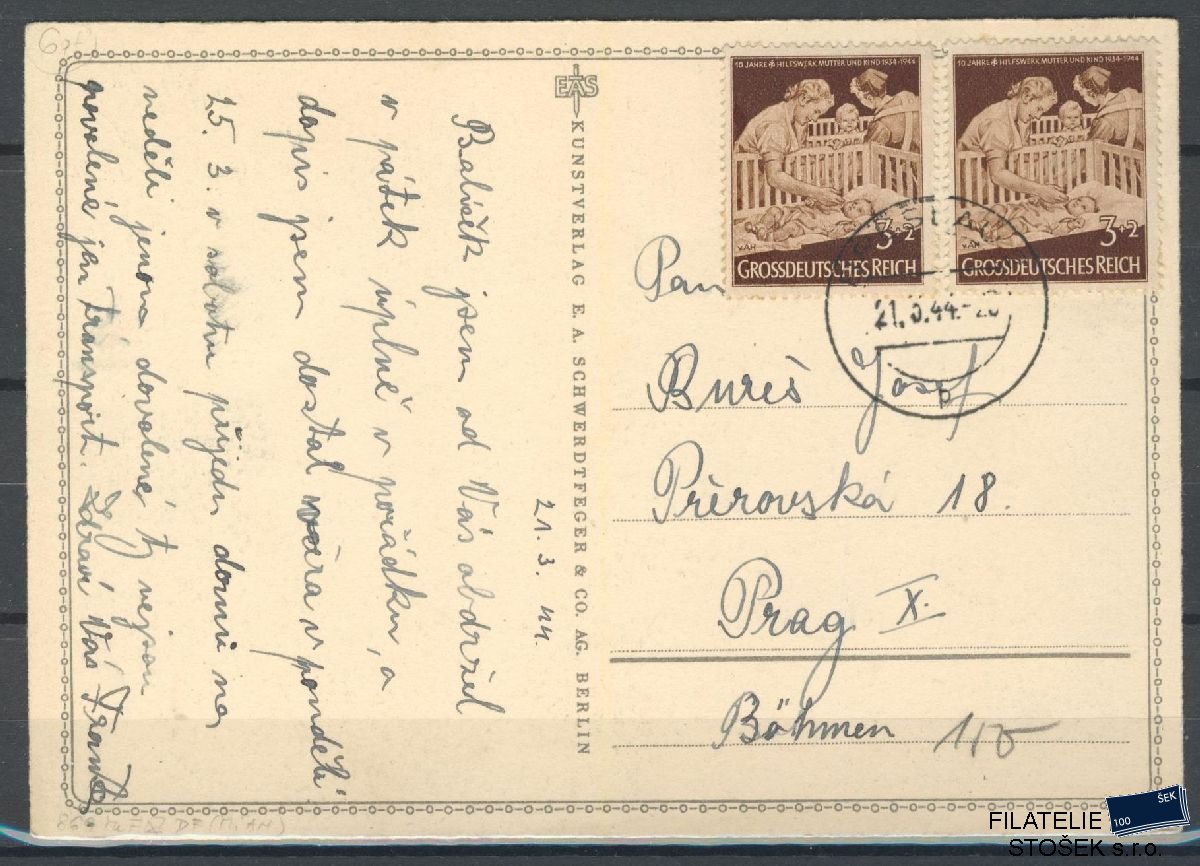 21. 3. 44.
Balíček jsem od Vás obdržel
v pátek úplně v pořádku, a
dopis jsem dostal včera v ponděli
25. 3. v sobotu přijedu domu na
neděli jenom dovolené, tj nejsou
povolené jen transport. Zdraví Vás
KUNSTVERLAG E. A. SCHWERDTFEGER & CO. AG. BERLIN
EAS
10 JAHRE HILFSWERK MUTTER UND KIND 1934-1944
3+2
GROSSDEUTSCHES REICH
10 JAHRE HILFSWERK MUTTER UND KIND 1934-1944
3+2
GROSSDEUTSCHES REICH
BRESLAU
b
Pan
Bureš Josef
Přerovská 18.
Prag X.
Böhmen
110
FILATELIE
STOŠEK s.r.o.
100
ŠEK